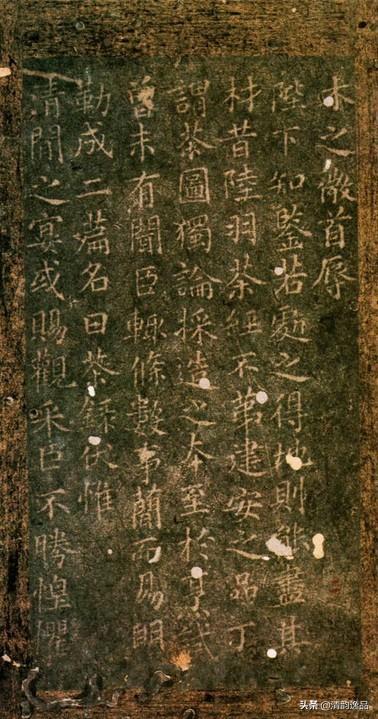 木之微首辱
陛下知鑒若處之得地則能盡其
材昔陸羽茶經不第建安之品丁
謂茶圖獨論採造之本至於烹試
曾未有聞臣輒條數事簡而易明
勒成二篇名曰茶錄伏惟
清閒之宴或賜觀采臣不勝惶懼
头条 @清韵逸品